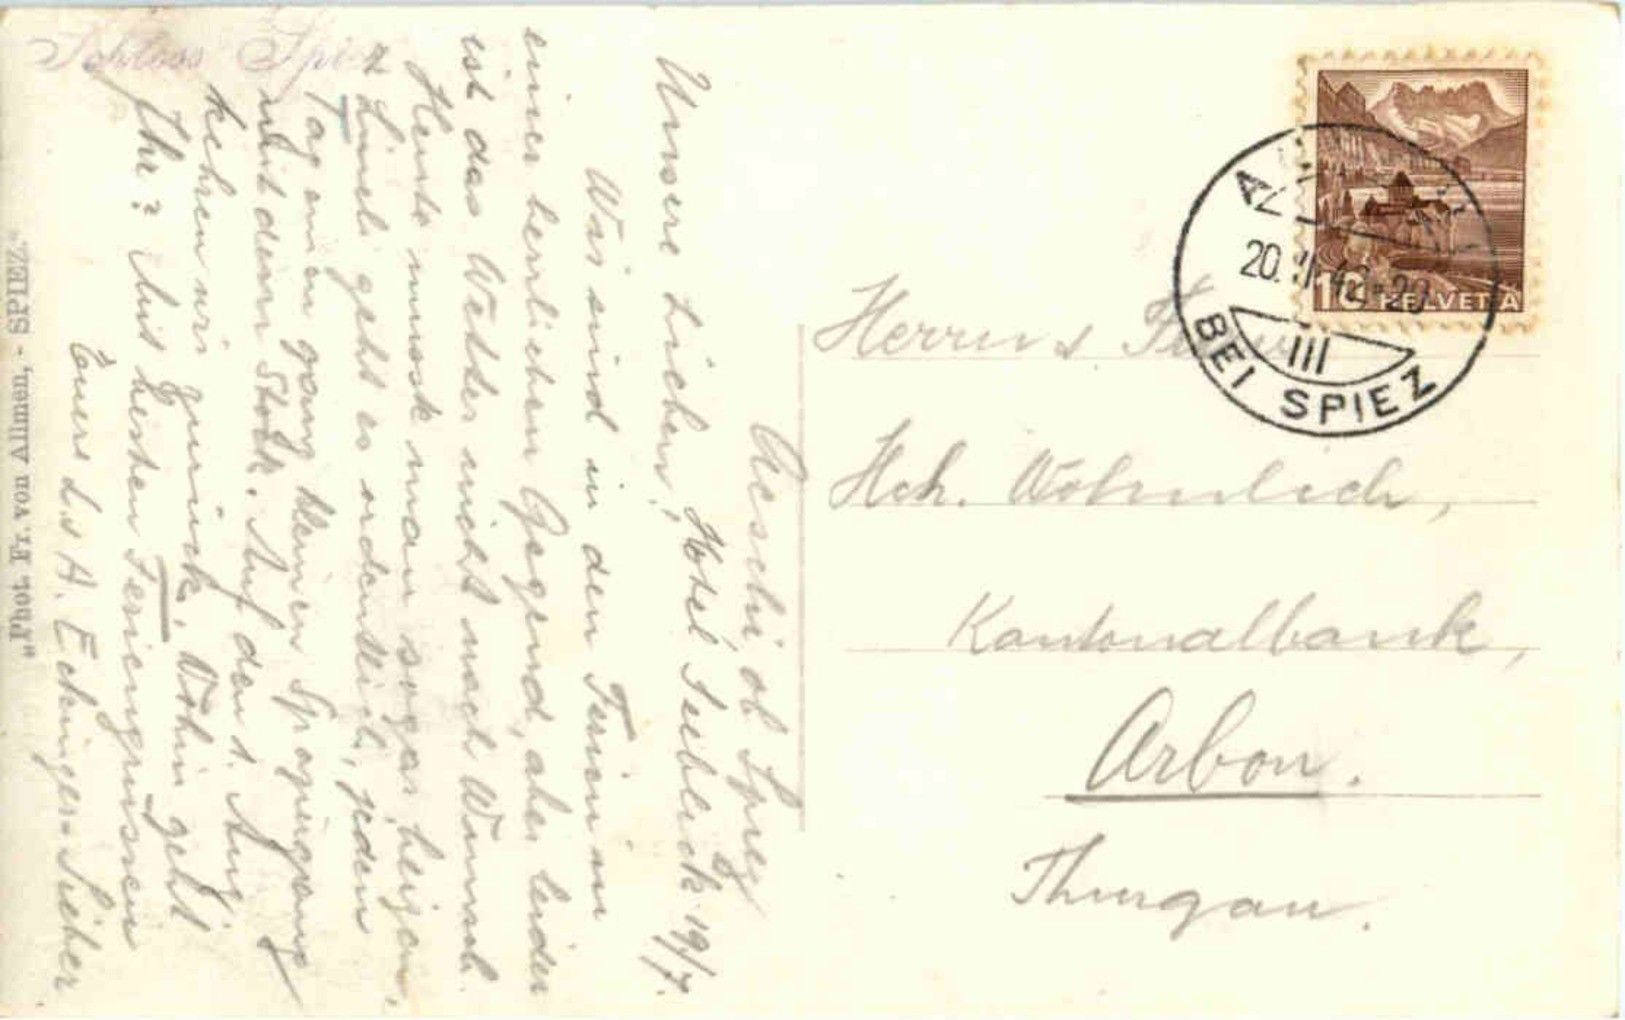 Schloss Spiez
„Phot. Fr. von Allmen, - SPIEZ."
Aeschi ob Spiez
Hotel Seeblick 19/7.
Unsere Lieben,
Wir sind in den Ferien in
einer herrlichen Gegend, aber leider
ist das Wetter nicht nach Wunsch.
Heute musste man sogar heizen,
geht es ordentlich, jeden
Tag einen ganz kleinen Spaziergang
mit dem Stock. Auf den 1. Aug.
kehren wir zurück. Wohin geht
Ihr? Mit besten Feriengrüssen
Eure L. u A. Echinger-Sieber
BEI SPIEZ
20. 40-20
III
10 HELVETIA
Herrn &
Hch. Wohnlich,
Kantonalbank,
Arbon.
Thurgau.